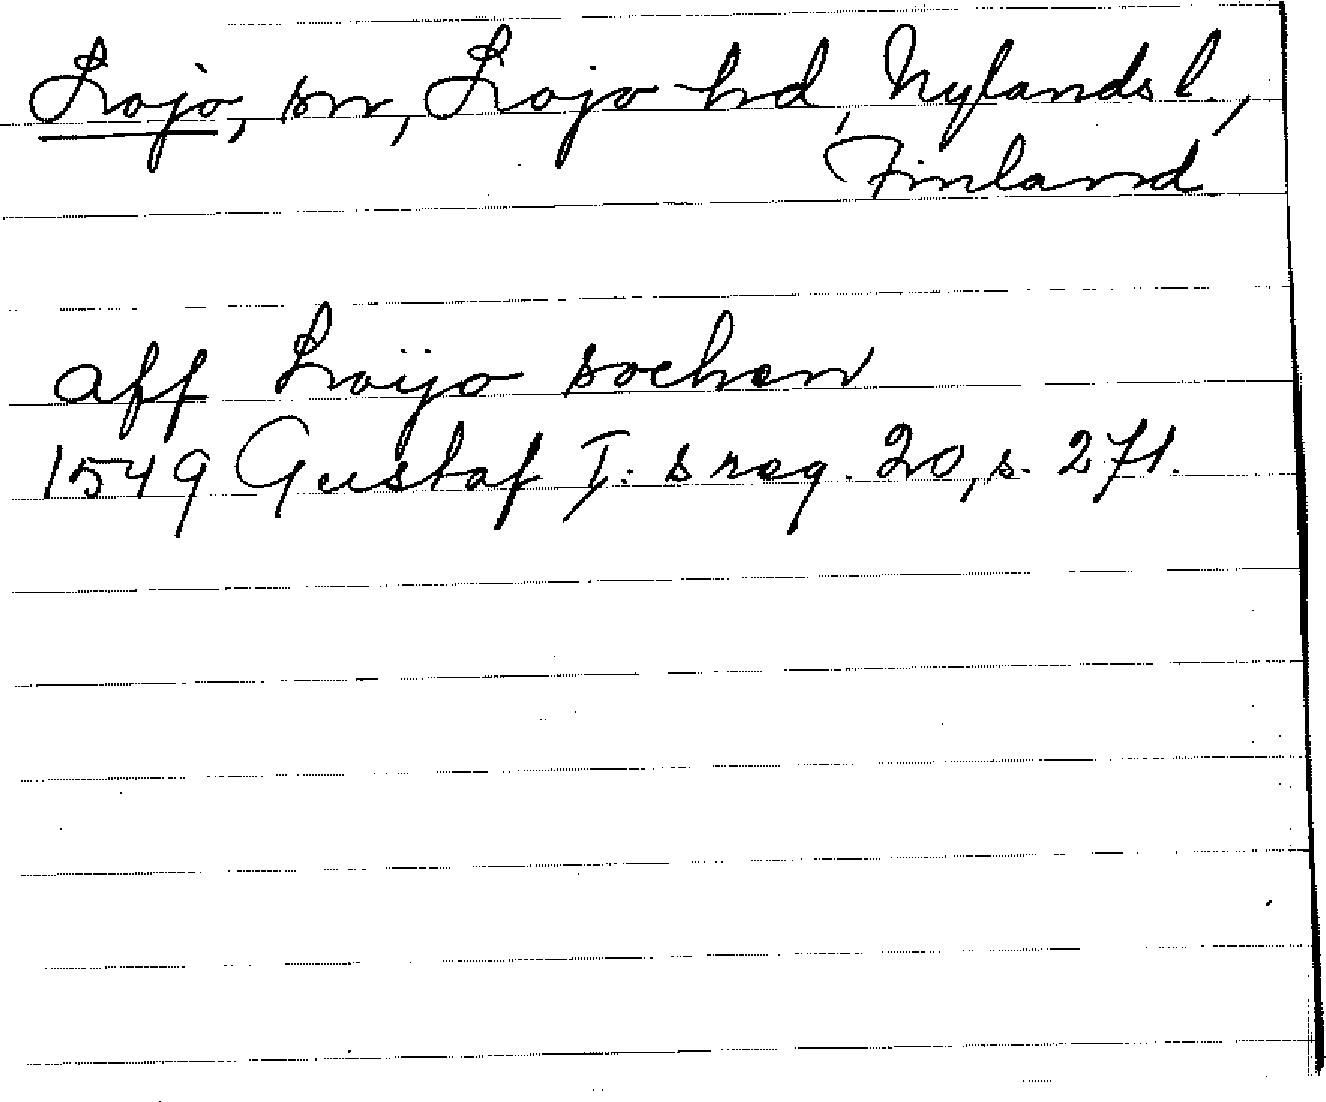 Lojo, sn, Lojo hd, Nylands l.,
Finland
aff Loijo sochen
1549 Gustaf I:s reg. 20, s. 271.